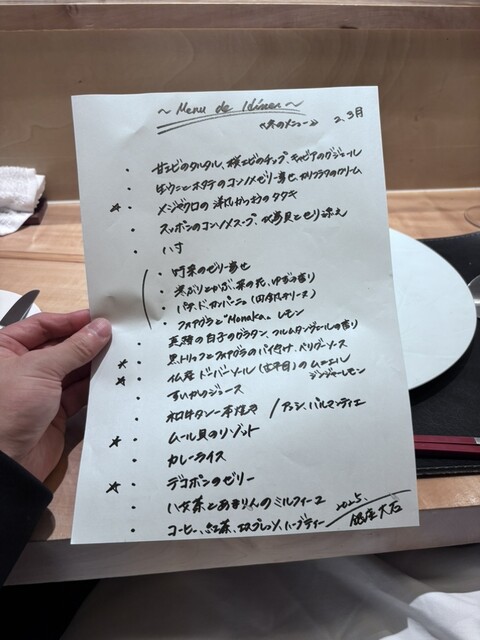 ～ Menu de Dîner ～
《冬のメニュー》 2、3月
・甘エビのタルタル、桜エビのチップ、キャビアのグジェール
・生ウニとホタテのコンソメゼリー寄せ、カリフラワのクリーム
☆・メジマグロの 洋風かつおのタタキ
・スッポンのコンソメスープ、 貝とせり添え
・八寸
・野菜のゼリー寄せ
・ かぶ、菜の花、ゆずの香り
・パテ・ド・カンパーニュ(田舎風テリーヌ)
・フォアグラと"Monaka"、レモン
・真鱈の白子のグラタン、フルムダンヴェールの香り
☆・黒トリュフとフォアグラのパイ包み、ペリグーソース
☆・仏産 ドーバーソール(舌平目)のムニエル
ジンジャーレモン
・すいかのジュース
・和牛タン一本焼き / アッシ・パルマンティエ
☆・ムール貝のリゾット
・カレーライス
☆・デコポンのゼリー
・八女茶とあまりんのミルフィーユ
・コーヒー、紅茶、エスプレッソ、ハーブティー
2025.
銀座大石